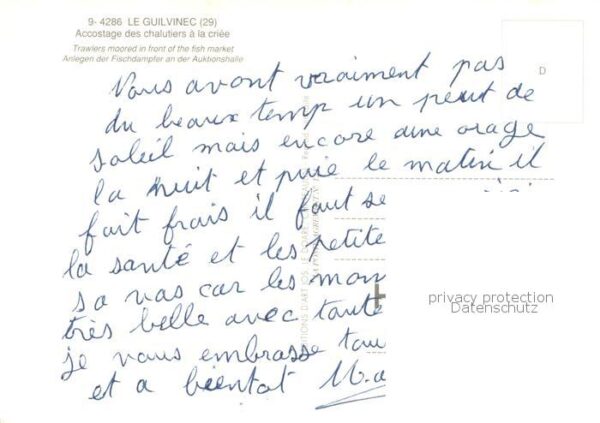 9- 4286 LE GUILVINEC (29)
Accostage des chalutiers à la criée
Trawlers moored in front of the fish market
Anlegen der Fischdampfer an der Auktionshalle
D
Nous avont vraiment pas
du beaux temp un peut de
soleil mais encore une orage
la nuit et puie le matin il
fait frais il faut se
la santé et les petite
sa vas car les mon
très belle avec toute
je vous embrasse tou
et a bientot
privacy protection
Datenschutz